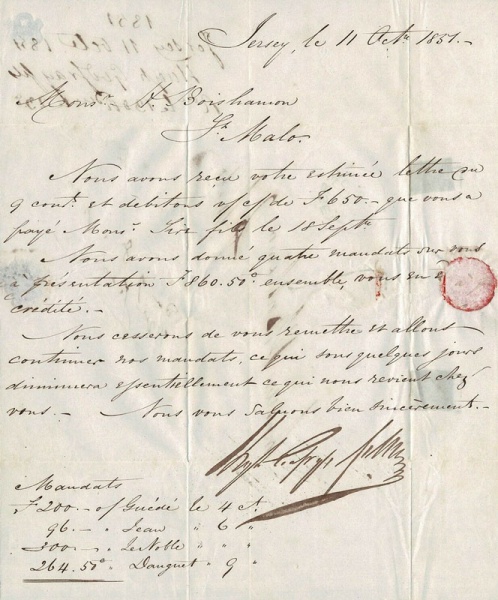 Jersey, le 11 Octre 1831.-
Monsr. Boishamon
St. Malo.
Nous avons reçu votre estimée lettre du
9 cont. et debitons v/c/ de F 650.- que vous a
payé Monsr. fils le 18 Septre
Nous avons donné quatre mandats sur vous
à présentation F 860.50c. ensemble, vous en
crédité.-
Nous cesserons de vous remettre et allons
continuer nos mandats, ce qui sous quelques jours
diminuera essentiellement ce qui nous revient chez
vous.- Nous vous saluons bien sincèrement.-
Mandats
F 200.- o/ Guédé le 4 ct.
96.- " Jean " 6 "
300.- " LeNoble " " "
264.50c " Danguet " 9 "